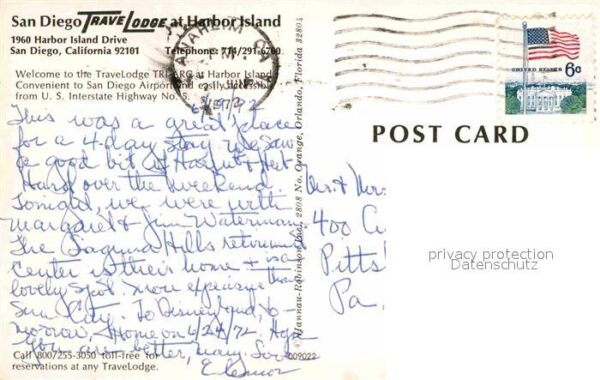 San Diego TRAVELODGE at Harbor Island
1960 Harbor Island Drive
San Diego, California 92101 Telephone: 714/291-6700
Welcome to the TraveLodge TRI-ARC at Harbor Island
Convenient to San Diego Airport and easily accessible
from U. S. Interstate Highway No. 5.
ANAHEIM CA
PM
1972
UNITED STATES 6c
POST CARD
This was a great place
for a 4 day stay. We saw
a good bit of Harriet &
Hank over the weekend.
Tonight, we were with
Margaret & Jim Waterman.
The Laguna Hills retirement
Center is their home & is a
lovely spot. More expensive than
Sun City. To Disneyland, to-
morrow. Home on 6/24/72. Hope
you are better, many. Love
Eleanor
Mr. & Mrs.
400
Pitts
Pa.
privacy protection
Datenschutz
© Hannau-Robinson, Inc., 2808 No. Orange, Orlando, Florida 32804
009022
Call 800/255-3050 toll-free for
reservations at any TraveLodge.